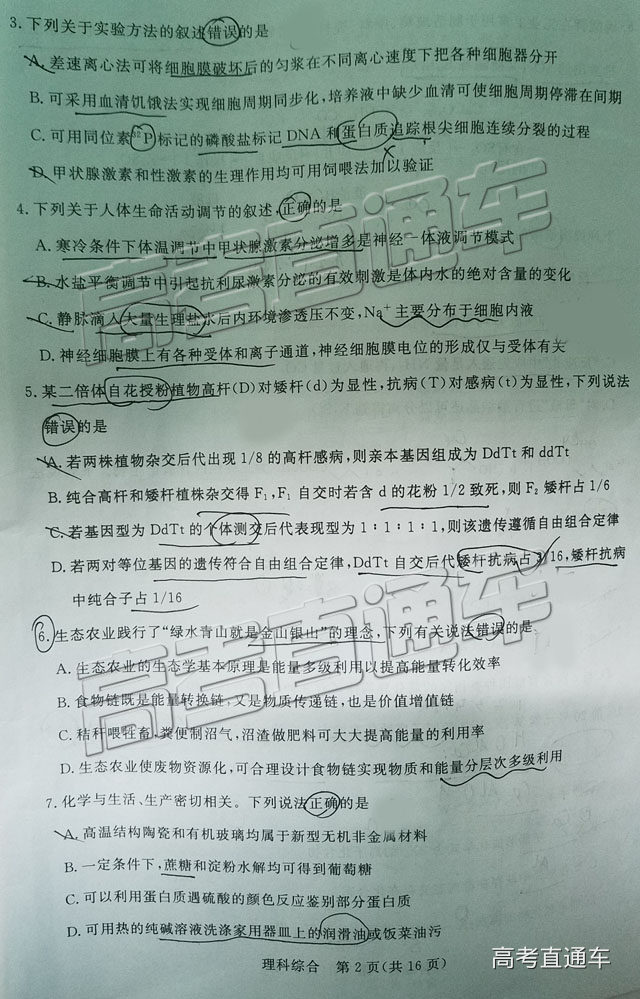 3. 下列关于实验方法的叙述错误的是
A. 差速离心法可将细胞膜破坏后的匀浆在不同离心速度下把各种细胞器分开
B. 可采用血清饥饿法实现细胞周期同步化，培养液中缺少血清可使细胞周期停滞在间期
C. 可用同位素³²P标记的磷酸盐标记DNA和蛋白质追踪根尖细胞连续分裂的过程
D. 甲状腺激素和性激素的生理作用均可用饲喂法加以验证
4. 下列关于人体生命活动调节的叙述，正确的是
A. 寒冷条件下体温调节中甲状腺激素分泌增多是神经—体液调节模式
B. 水盐平衡调节中引起抗利尿激素分泌的有效刺激是体内水的绝对含量的变化
C. 静脉滴入大量生理盐水后内环境渗透压不变，Na⁺主要分布于细胞内液
D. 神经细胞膜上有各种受体和离子通道，神经细胞膜电位的形成仅与受体有关
5. 某二倍体自花授粉植物高杆(D)对矮杆(d)为显性，抗病(T)对感病(t)为显性，下列说法
错误的是
A. 若两株植物杂交后代出现1/8的高杆感病，则亲本基因组成为DdTt和ddTt
B. 纯合高杆和矮杆植株杂交得F₁，F₁自交时若含d的花粉1/2致死，则F₂矮杆占1/6
C. 若基因型为DdTt的个体测交后代表现型为1∶1∶1∶1，则该遗传遵循自由组合定律
D. 若两对等位基因的遗传符合自由组合定律，DdTt自交后代矮杆抗病占3/16，矮杆抗病
中纯合子占1/16
6. 生态农业践行了“绿水青山就是金山银山”的理念，下列有关说法错误的是
A. 生态农业的生态学基本原理是能量多级利用以提高能量转化效率
B. 食物链既是能量转换链，又是物质传递链，也是价值增值链
C. 秸秆喂牲畜，粪便制沼气，沼渣做肥料可大大提高能量的利用率
D. 生态农业使废物资源化，可合理设计食物链实现物质和能量分层次多级利用
7. 化学与生活、生产密切相关。下列说法正确的是
A. 高温结构陶瓷和有机玻璃均属于新型无机非金属材料
B. 一定条件下，蔗糖和淀粉水解均可得到葡萄糖
C. 可以利用蛋白质遇硫酸的颜色反应鉴别部分蛋白质
D. 可用热的纯碱溶液洗涤家用器皿上的润滑油或饭菜油污
理科综合 第2页(共16页)
高考直通车
高考直通车
高考直通车